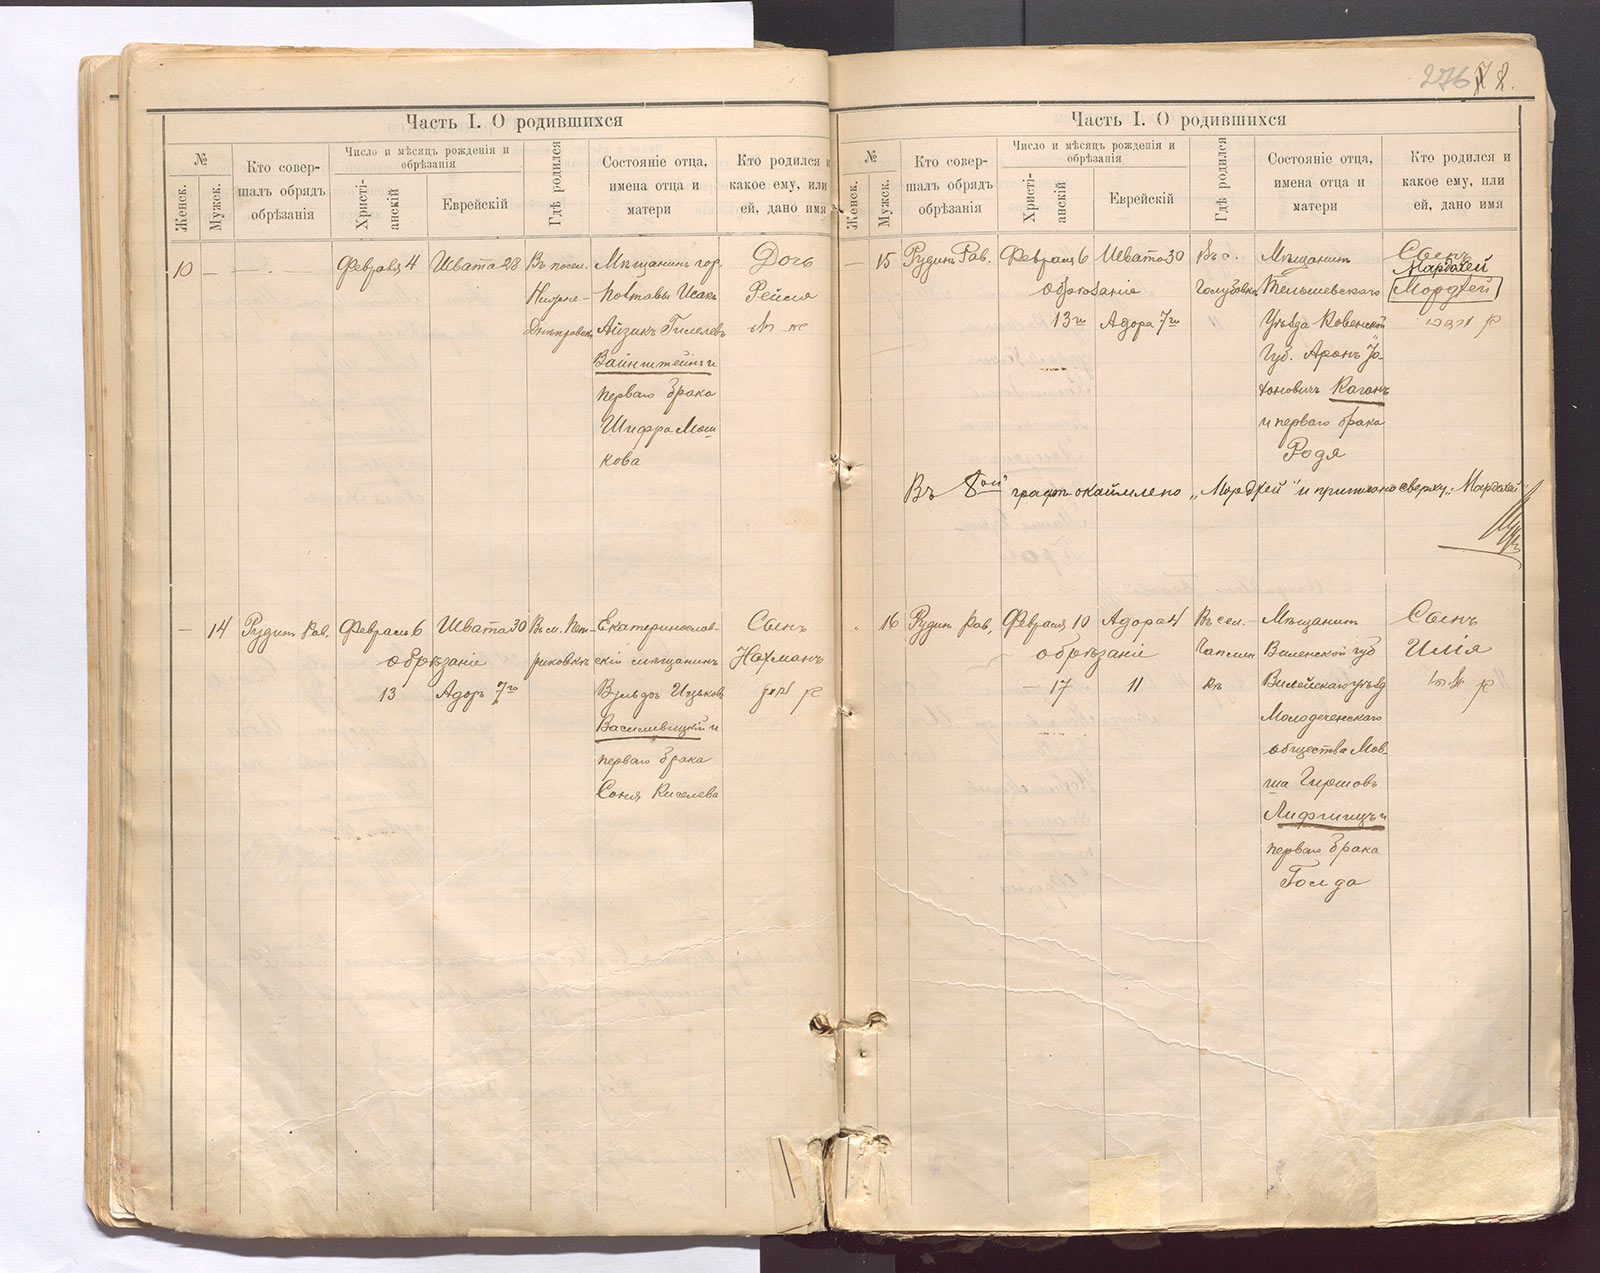 Часть I. О родившихся
№
Женск.
Мужск.
Кто совер-
шалъ обрядъ
обрѣзанія
Число и мѣсяцъ рожденія и
обрѣзанія
Христі-
анскій
Еврейскій
Гдѣ родился
Состояніе отца,
имена отца и
матери
Кто родился и
какое ему, или
ей, дано имя
10
Февраля 4
Швата 28
Въ посел.
Нижне-
Днѣпровск
Мѣщанинъ гор.
Полтавы Исакъ
Айзикъ Гиселевъ
Вайнштейнъ и
перваго брака
Шифра Мош
кова
Дочь
Рейся
14
Рудинъ Рав.
Февраль 6
Швата 30
обрѣзаніе
13
Адоръ 7го
Въ м. Пет-
риковкѣ
Екатеринослав-
скій мѣщанинъ
Вульфъ Ицьковъ
Василевицкій и
перваго брака
Соня Киселева
Сынъ
Нахманъ
276
Часть I. О родившихся
№
Женск.
Мужск.
Кто совер-
шалъ обрядъ
обрѣзанія
Число и мѣсяцъ рожденія и
обрѣзанія
Христі-
анскій
Еврейскій
Гдѣ родился
Состояніе отца,
имена отца и
матери
Кто родился и
какое ему, или
ей, дано имя
15
Рудинъ Рав.
Февраля 6
Швата 30
обрѣзаніе
13го
Адора 7го
Въ с.
Голубовкѣ
Мѣщанинъ
Тельшевскаго
Уѣзда Ковенской
Губ. Аронъ
Каганъ
и перваго брака
Родя
Сынъ
Мардохей
Мордхей
Въ 8ой графѣ окаймлено „Мордхей“ и приписано сверху: „Мардохей“
16
Рудинъ Рав.
Февраля 10
Адора 4
обрѣзаніе
17
11
Въ сел.
Чаплин
кѣ
Мѣщанинъ
Виленской губ
Вилейскаго уѣзд
Молодеченскаго
общества Мов
ша Гиршовъ
Лифшицъ и
перваго брака
Голда
Сынъ
Илія